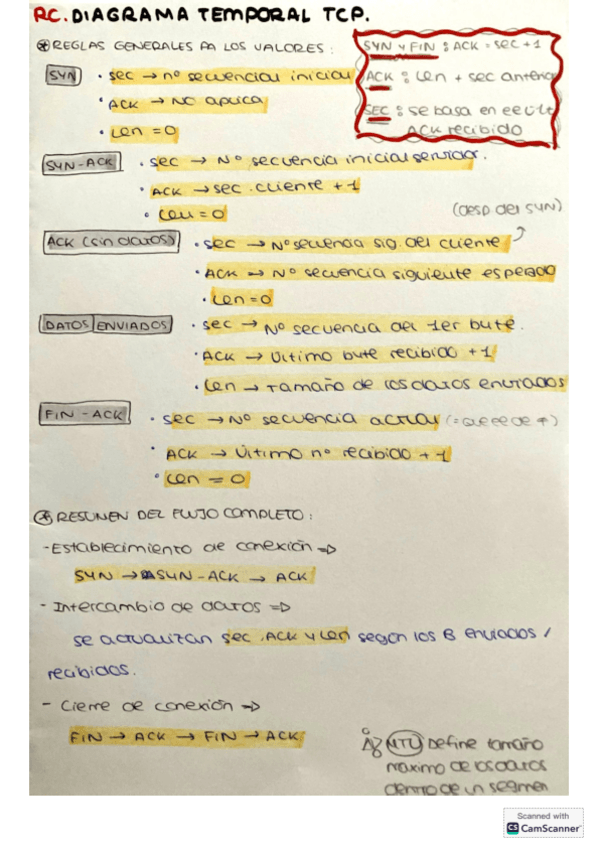 RC. DIAGRAMA TEMPORAL TCP.
* REGLAS GENERALES PA LOS VALORES:
SYN y FIN : ACK = sec + 1
ACK : Len + sec anterior
SEC : se basa en el últ
ACK recibido
SYN
· sec → nº secuencial inicial
· ACK → NO aplica
· Len = 0
SYN-ACK
· sec → Nº secuencia inicial servidor.
· ACK → sec. cliente + 1
· Len = 0
(desp del SYN)
ACK (sin datos)
· sec → Nº secuencia sig. del cliente
· ACK → Nº secuencia siguiente esperado
· Len = 0
DATOS ENVIADOS
· sec → Nº secuencia del 1er byte.
· ACK → Último byte recibido + 1
· Len → Tamaño de los datos enviados
FIN - ACK
· sec → Nº secuencia actual (= que el de ↑)
· ACK → Último nº recibido + 1
· Len = 0
* RESUMEN DEL FLUJO COMPLETO:
- Establecimiento de conexión ⇒
SYN → SYN-ACK → ACK
- Intercambio de datos ⇒
se actualizan sec, ACK y Len según los B enviados /
recibidos.
- Cierre de conexión ⇒
FIN → ACK → FIN → ACK
MTU Define tamaño
máximo de los datos
dentro de un segmen
Scanned with
CS CamScanner